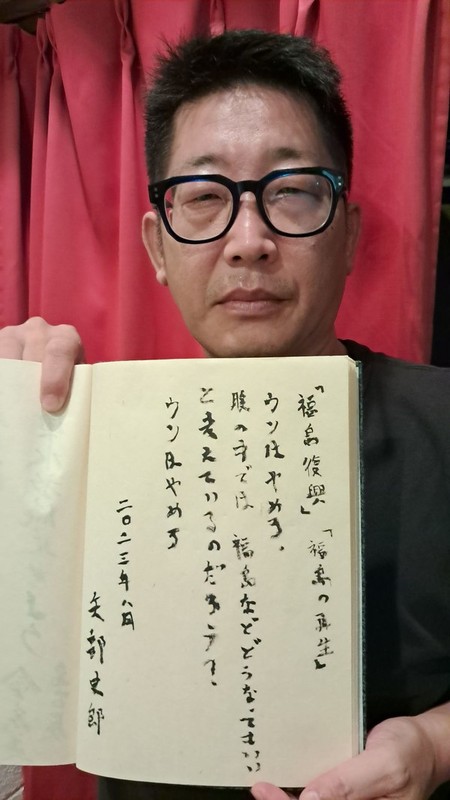 「福島復興」「福島の再生」
ウソはやめろ。
腹の中では福島などどうなってもいい
と考えているのだろう
ウソはやめろ
二〇二三年八月
矢部史郎